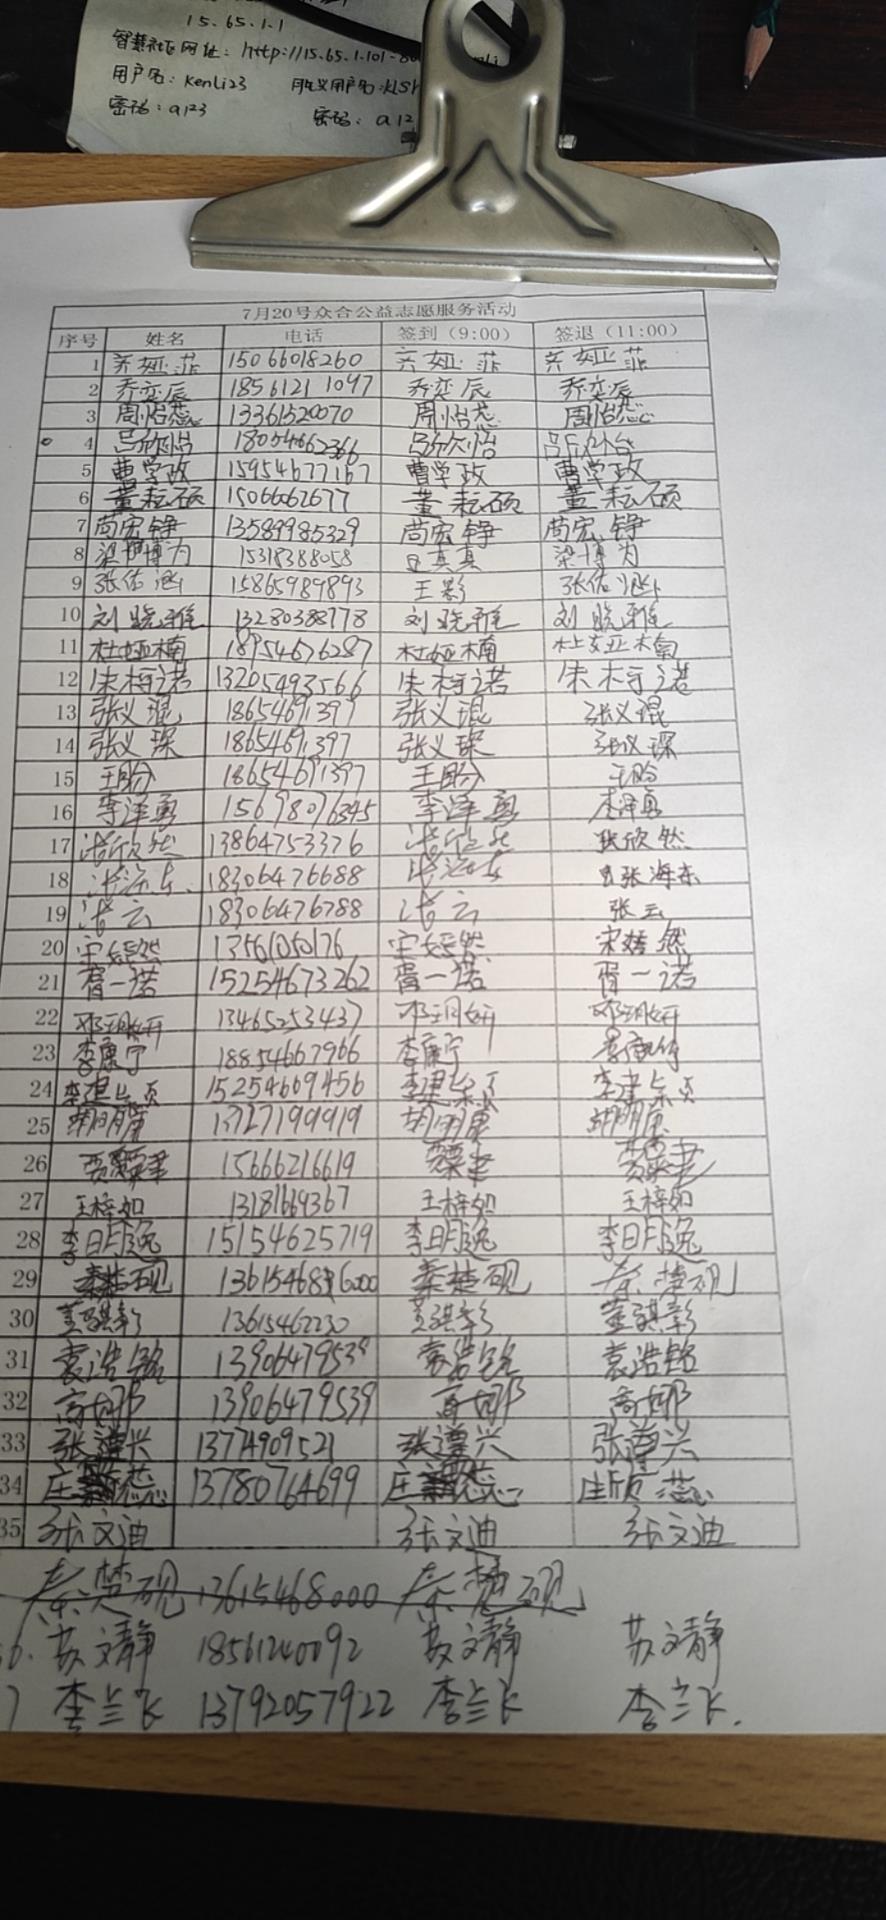 15.65.1.1
智慧社区网址：http://15.65.1.101-80
用户名：Kenli23 自定义用户名：KLSH
密码：a123 密码：a12
7月20号众合公益志愿服务活动
序号 姓名 电话 签到（9:00） 签退（11:00）
1 乔娅菲 15066018260 乔娅菲 乔娅菲
2 乔奕辰 18561211097 乔奕辰 乔奕辰
3 周怡蕊 13361520070 周怡蕊 周怡蕊
4 吕欣怡 18054662366 吕欣怡 吕欣怡
5 曹学政 15954677167 曹学政 曹学政
6 董耘硕 1506662677 董耘硕 董耘硕
7 苘宏铮 13589985329 苘宏铮 苘宏铮
8 梁博为 15318388058 真真 梁博为
9 张佑 15865989893 王影 张佑
10 刘晓雅 13280388778 刘晓雅 刘晓雅
11 杜娅楠 18954676287 杜娅楠 杜娅楠
12 朱梓诺 13205493566 朱梓诺 朱梓诺
13 张义混 18654691397 张义混 张义混
14 张义琛 18654691397 张义琛 张义琛
15 王盼 18654691397 王盼 王盼
16 李泽勇 15698076345 李泽勇 李泽勇
17 张欣然 13864753376 张欣然 张欣然
18 张海东 18306476688 张海东 张海东
19 张云 18306476788 张云 张云
20 宋嫣然 13561050176 宋嫣然 宋嫣然
21 胥一诺 15254673262 胥一诺 胥一诺
22 邓玥妍 13465253437 邓玥妍 邓玥妍
23 李康宁 18854667966 李康宁 李康宁
24 李建贞 15254609456 李建贞 李建贞
25 胡明康 13727199919 胡明康 胡明康
26 贾聿 15666216619 贾聿 贾聿
27 王梓如 13181669367 王梓如 王梓如
28 李明逸 15154625719 李明逸 李明逸
29 秦楚砚 13615468000 秦楚砚 秦楚砚
30 董骐彰 13615462230 董骐彰 董骐彰
31 袁浩铭 13906479539 袁浩铭 袁浩铭
32 高娜 13906479539 高娜 高娜
33 张遵兴 13774909521 张遵兴 张遵兴
34 庄欣蕊 13780764699 庄欣蕊 庄欣蕊
35 张文迪 张文迪 张文迪
秦楚砚 13615468000 秦楚砚
6. 苏文静 18561240092 苏文静 苏文静
7 李兰飞 13792057922 李兰飞 李兰飞.